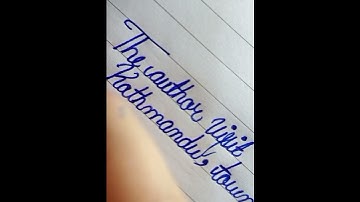 The author visit
Kathmandu, town